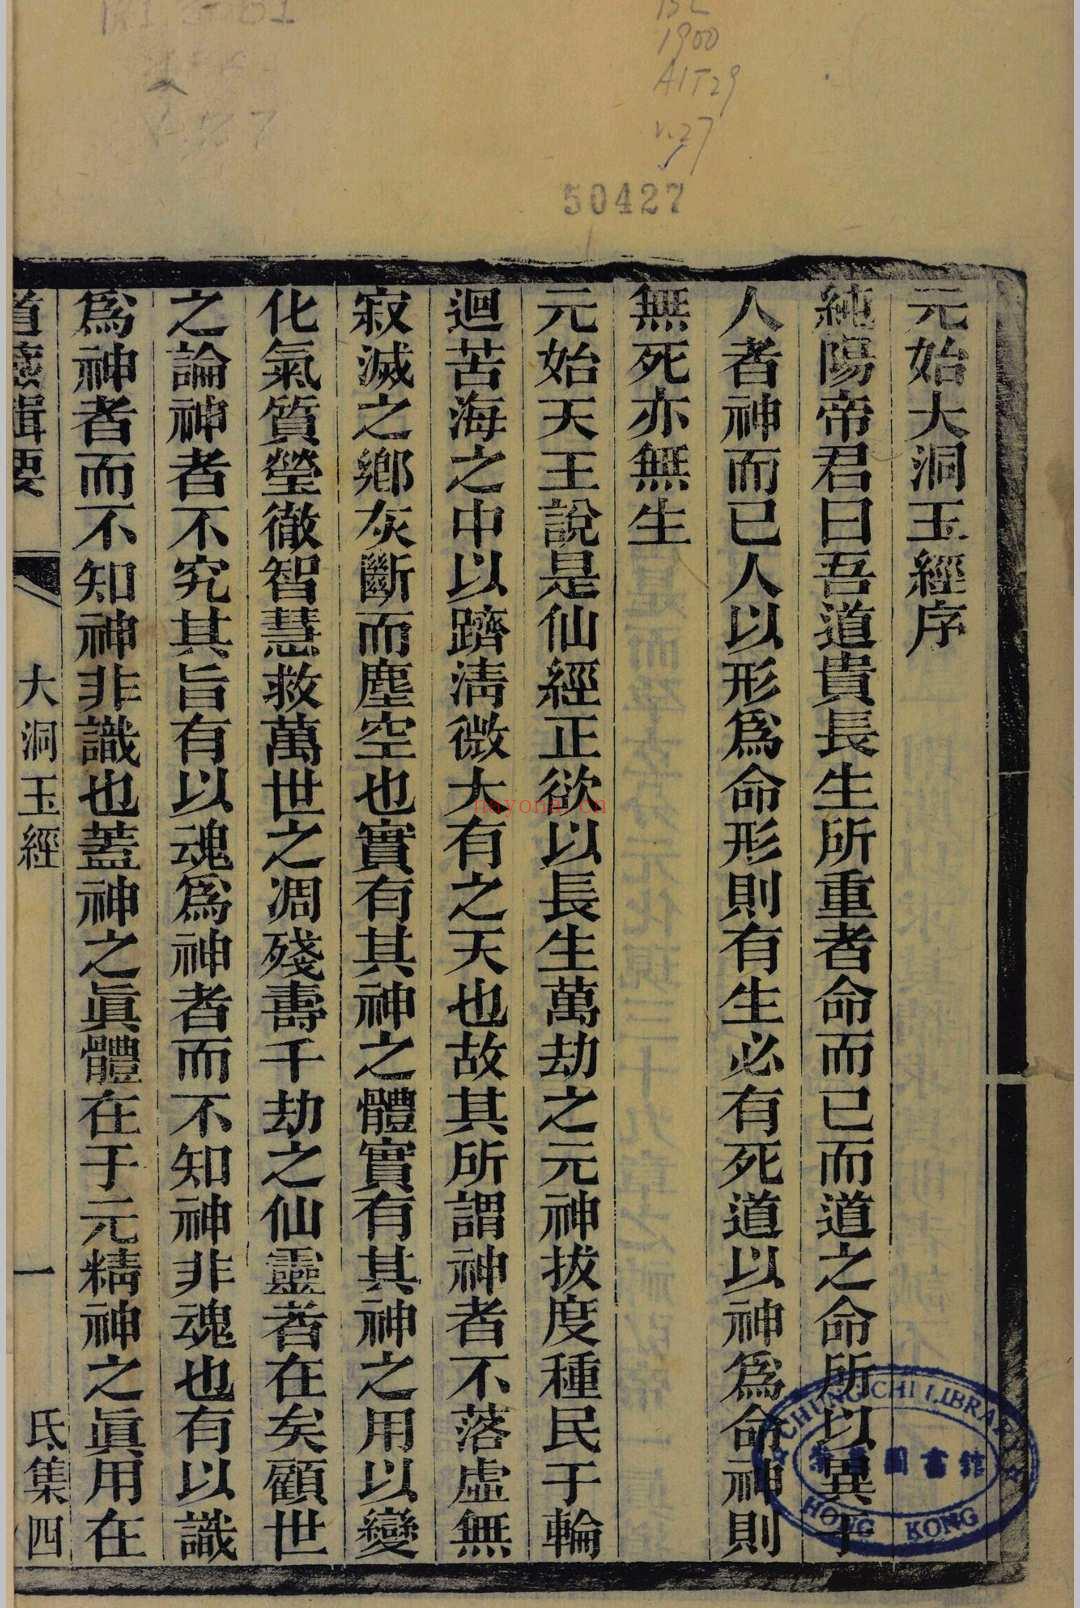 BL
1900
A1T29
v.27
50427
元始大洞玉經序
純陽帝君曰吾道貴長生所重者命而已而道之命所以異于
人者神而已人以形爲命形則有生必有死道以神爲命神則
無死亦無生
元始天王說是仙經正欲以長生萬劫之元神拔度種民于輪
迴苦海之中以躋淸微大有之天也故其所謂神者不落虛無
寂滅之鄉灰斷而塵空也實有其神之體實有其神之用以變
化氣質瑩徹智慧救萬世之凋殘壽千劫之仙靈者在矣顧世
之論神者不究其旨有以魂爲神者而不知神非魂也有以識
爲神者而不知神非識也蓋神之眞體在于元精神之眞用在
道藏輯要 大洞玉經 一 氐集四
CHUNG CHI LIBRARY
崇基圖書館
HONG KONG
nayona.cn